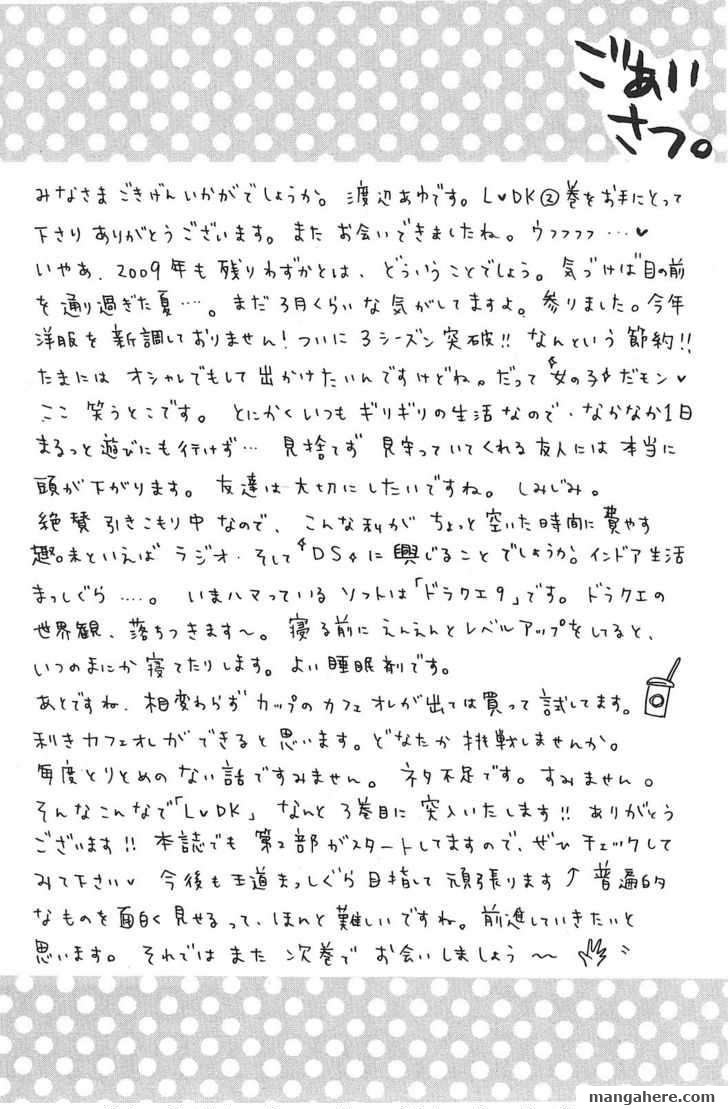 ごあい
さつ。
みなさま ごきげんいかがでしょうか。 渡辺あゆです。L♥DK②巻をお手にとって
下さり ありがとうございます。また お会いできましたね。ウフフフフ…♥
いやあ、2009年も残りわずかとは、どういうことでしょう。気づけば目の前
を通り過ぎた夏…。まだ3月くらいな気がしてますよ。参りました。今年
洋服を新調しておりません!ついに3シーズン突破!!なんという節約!!
たまにはオシャレでもして出かけたいんですけどね。だって〝女の子〟だモン♥
ここ 笑うとこです。とにかくいつもギリギリの生活なので、なかなか1日
まるっと遊びにも行けず… 見捨てず見守っていてくれる友人には本当に
頭が下がります。友達は大切にしたいですね。しみじみ。
絶賛引きこもり中なので、こんな私がちょっと空いた時間に費やす
趣味といえばラジオ、そして〝DS〟に興じることでしょうか。インドア生活
まっしぐら…。いまハマっているソフトは「ドラクエ9」です。ドラクエの
世界観、落ちつきます〜。寝る前にえんえんとレベルアップをしてると、
いつのまにか寝てたりします。よい睡眠剤です。
あとですね、相変わらずカップのカフェオレが出ては買って試してます。
利きカフェオレができると思います。どなたか挑戦しませんか。
毎度とりとめのない話ですみません。ネタ不足です。すみません。
そんなこんなで「L♥DK」なんと3巻目に突入いたします!!ありがとう
ございます!!本誌でも第2部がスタートしてますので、ぜひチェックして
みて下さい♥ 今後も王道まっしぐら目指して頑張ります↑ 普遍的
なものを面白く見せるって、ほんと難しいですね。前進していきたいと
思います。それではまた次巻でお会いしましょう〜
mangahere.com